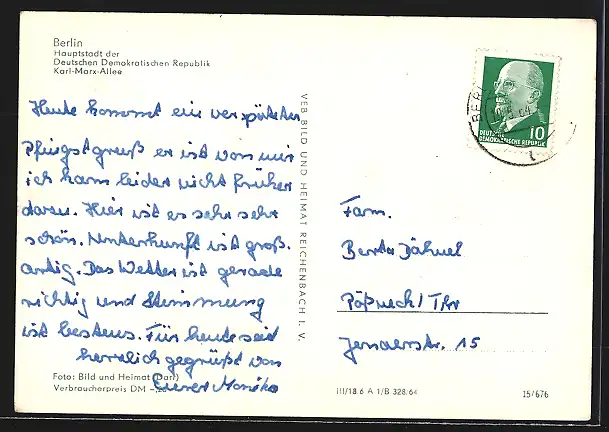 Berlin
Hauptstadt der
Deutschen Demokratischen Republik
Karl-Marx-Allee
Heute kommt ein verspäteter
Pfingstgruß er ist von mir
ich kam leider nicht früher
daran. Hier ist es sehr sehr
schön. Unterkunft ist groß.
artig. Das Wetter ist gerade
richtig und Stimmung
ist bestens. Für heute seid
herzlich gegrüßt von
Eurer Monika
Foto: Bild und Heimat (Darr)
Verbraucherpreis DM -,20
VEB BILD UND HEIMAT REICHENBACH I. V.
DEUTSCHE
DEMOKRATISCHE REPUBLIK
10
Fam.
Berta Dähnel
Pößneck/Thr
Jenaerstr. 15
III/18.6 A 1/B 328/64
15/676